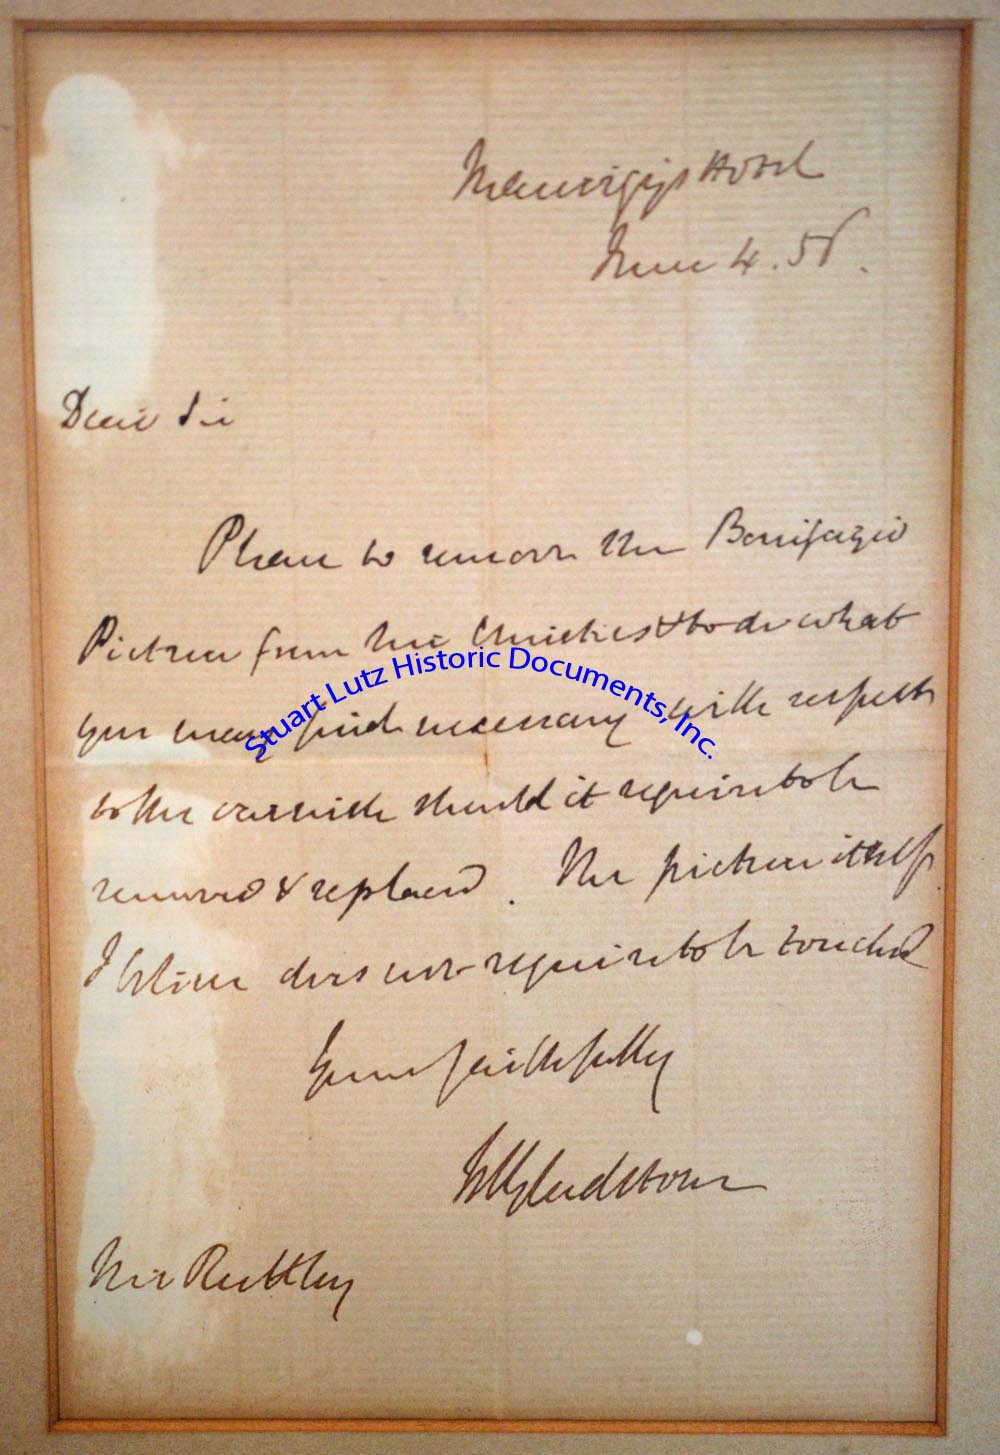 Hotel
June 4. 58.
Dear Sir
Please to remove the Bonifazio
Picture from Mr Christies & to do what
you may find necessary with respect
Stuart Lutz Historic Documents, Inc.
to the varnish should it require to be
removed & replaced. The picture itself
I believe does not require to be touched
Yours faithfully
WGladstone
Mr Ruttley